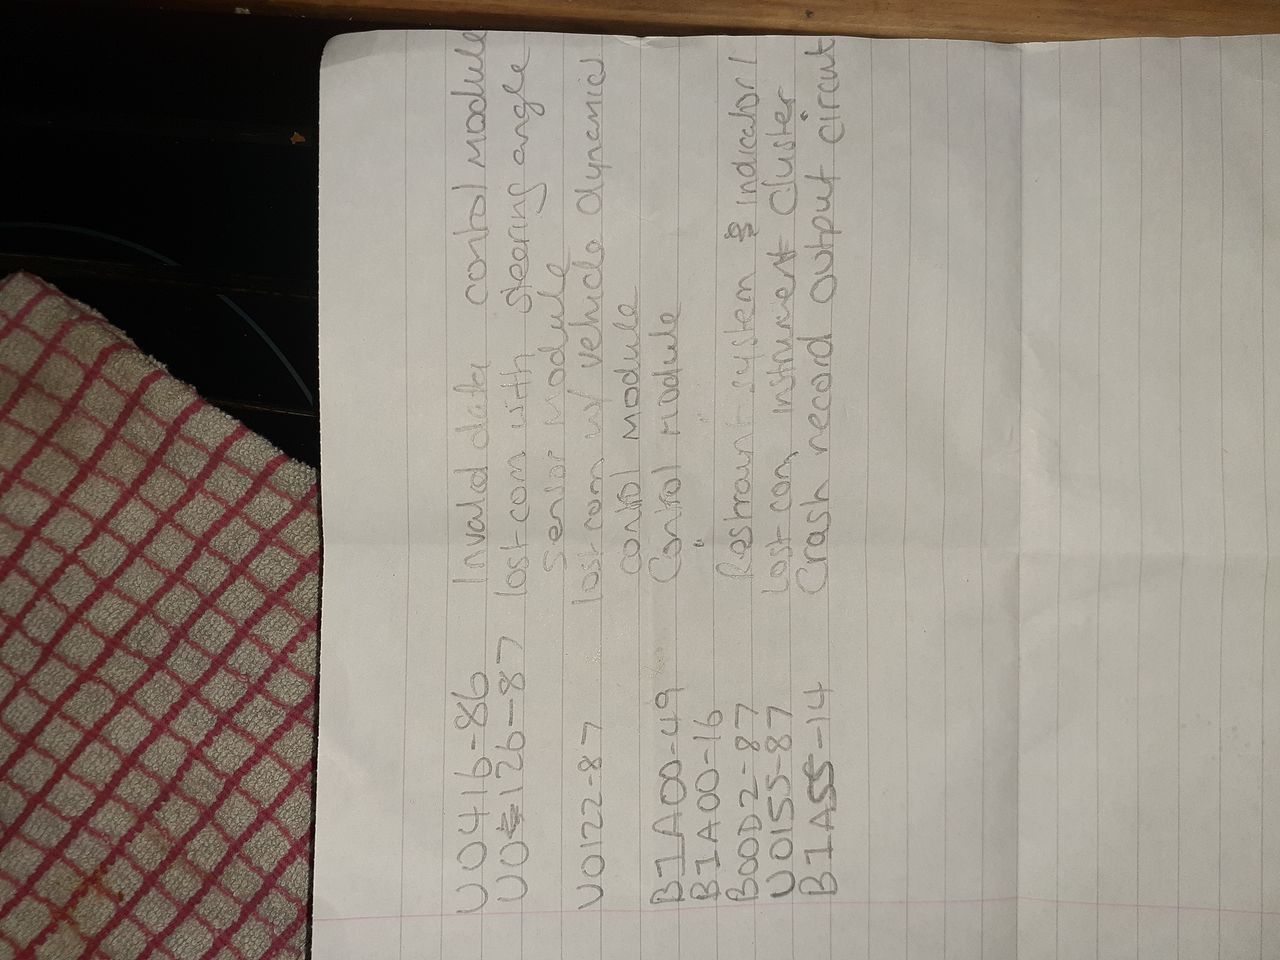 U0416-86 Invalid data control module
U0126-87 lost com with stearing angle
sensor module
U0122-87 lost com w/ vehicle dynamics
control module
B1A00-49 Control module
B1A00-16 " "
B00D2-87 Restraint system & indicator 1
U0155-87 Lost com instrument cluster
B1A55-14 Crash record output circut